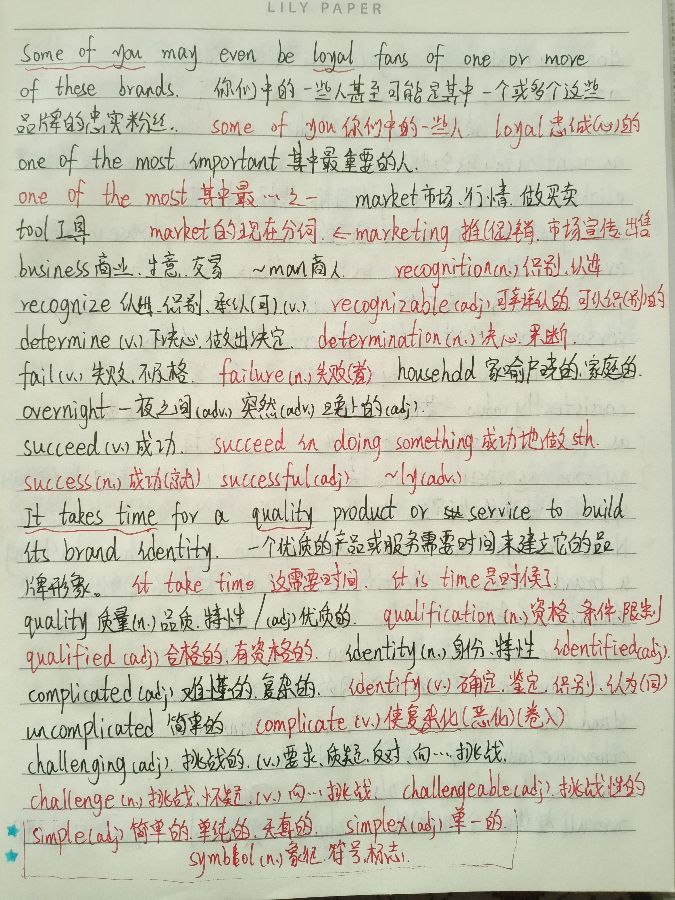 LILY PAPER
Some of you may even be loyal fans of one or more
of these brands. 你们中的一些人甚至可能是其中一个或多个这些
品牌的忠实粉丝. some of you 你们中的一些人 loyal 忠诚(心)的
one of the most important 其中最重要的人.
one of the most 其中最…之一 market 市场、行情、做买卖
tool 工具 market的现在分词 ← marketing 推(促)销、市场宣传、出售
business 商业、生意、交易 ~man 商人. recognition (n.) 识别、认准
recognize 认准、识别、承认(可) (v.) recognizable (adj) 可辨认的、可认识(别)的
determine (v.) 下决心、做出决定. determination (n.) 决心、果断.
fail (v.) 失败、不及格. failure (n.) 失败(者) household 家喻户晓的、家庭的.
overnight 一夜之间 (adv.) 突然 (adv.) 晚上的 (adj).
succeed (v.) 成功. succeed in doing something 成功地做 sth.
success (n.) 成功(就) successful (adj) ~ly (adv.)
It takes time for a quality product or service to build
its brand identity. 一个优质的产品或服务需要时间来建立它的品
牌形象。 it take time 这需要时间. it is time 是时候了.
quality 质量 (n.) 品质、特性 / (adj) 优质的. qualification (n.) 资格、条件、限制
qualified (adj) 合格的、有资格的. identity (n.) 身份、特性 identified (adj).
complicated (adj) 难懂的、复杂的. identify (v.) 确定、鉴定、识别、认为(同)
uncomplicated 简单的 complicate (v.) 使复杂化(恶化)(卷入)
challenging (adj). 挑战的. (v.) 要求、质疑、反对、向…挑战.
challenge (n.) 挑战、怀疑、(v.) 向…挑战. challengeable (adj). 挑战性的
simple (adj) 简单的、单纯的、天真的. simplex (adj) 单一的.
symbol (n.) 象征、符号、标志.